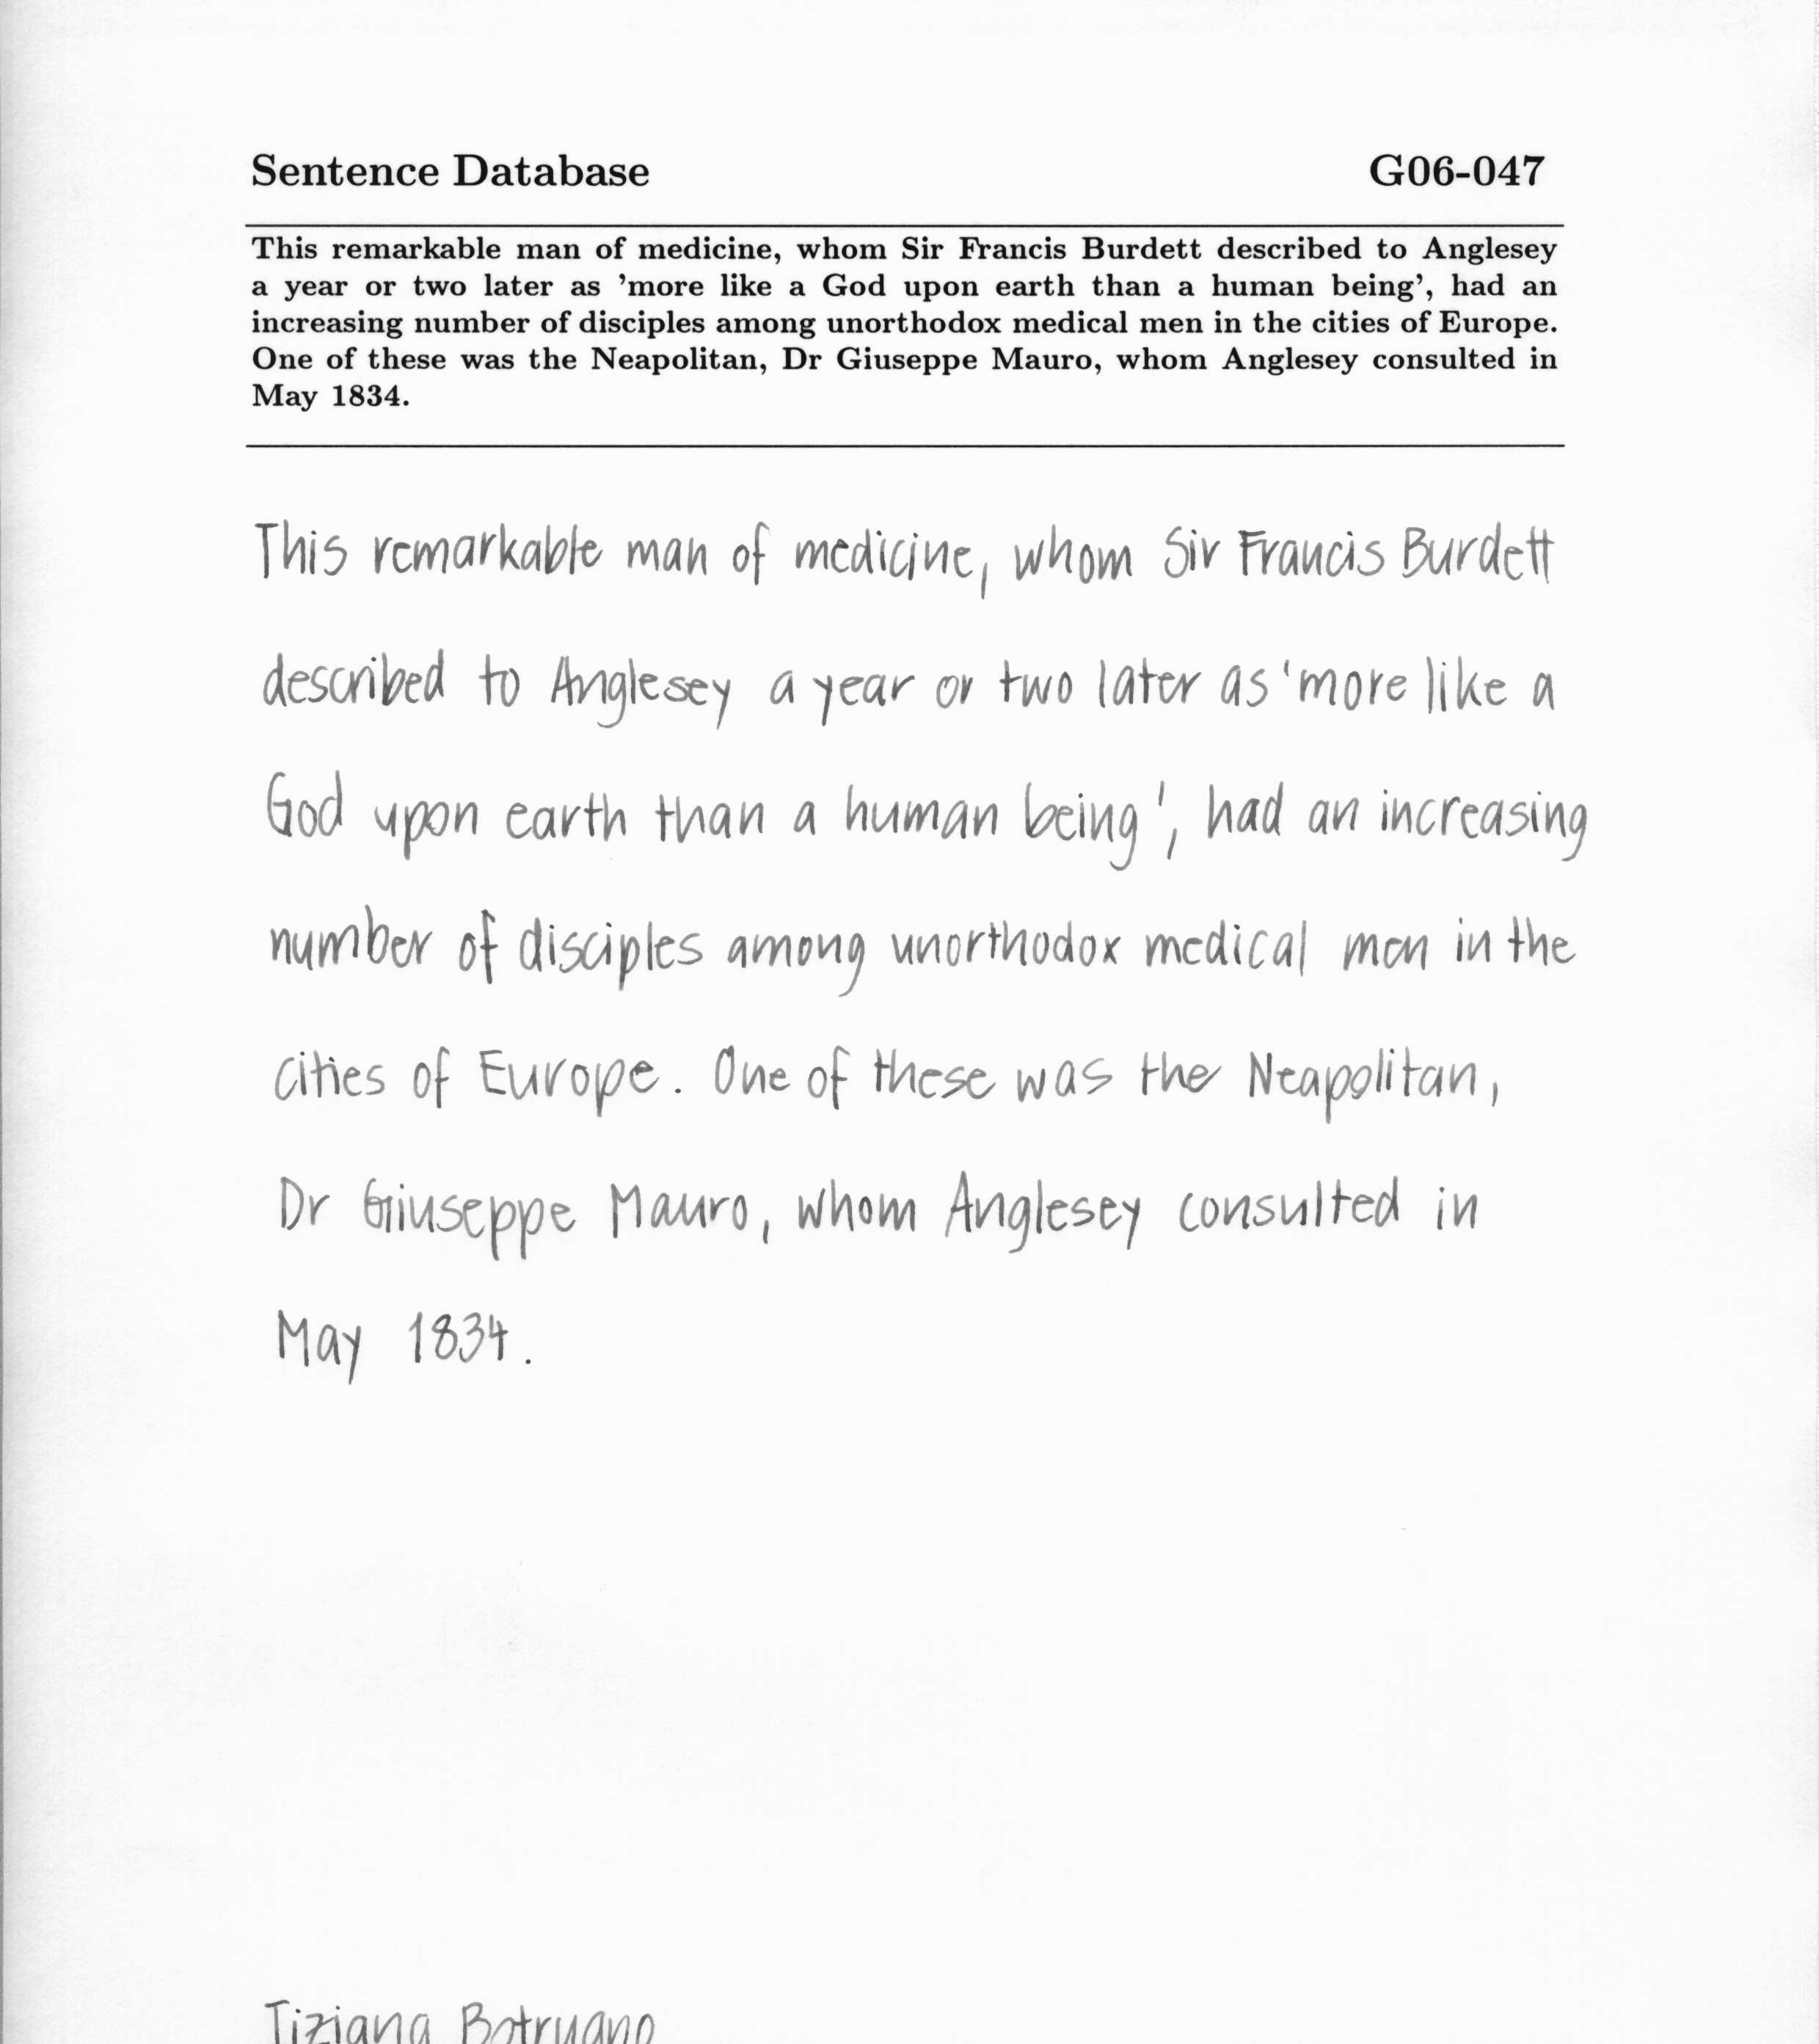 Sentence Database G06-047
This remarkable man of medicine, whom Sir Francis Burdett described to Anglesey
a year or two later as 'more like a God upon earth than a human being', had an
increasing number of disciples among unorthodox medical men in the cities of Europe.
One of these was the Neapolitan, Dr Giuseppe Mauro, whom Anglesey consulted in
May 1834.
This remarkable man of medicine, whom Sir Francis Burdett
described to Anglesey a year or two later as 'more like a
God upon earth than a human being', had an increasing
number of disciples among unorthodox medical men in the
cities of Europe. One of these was the Neapolitan,
Dr Giuseppe Mauro, whom Anglesey consulted in
May 1834.
Tiziana Botrugno